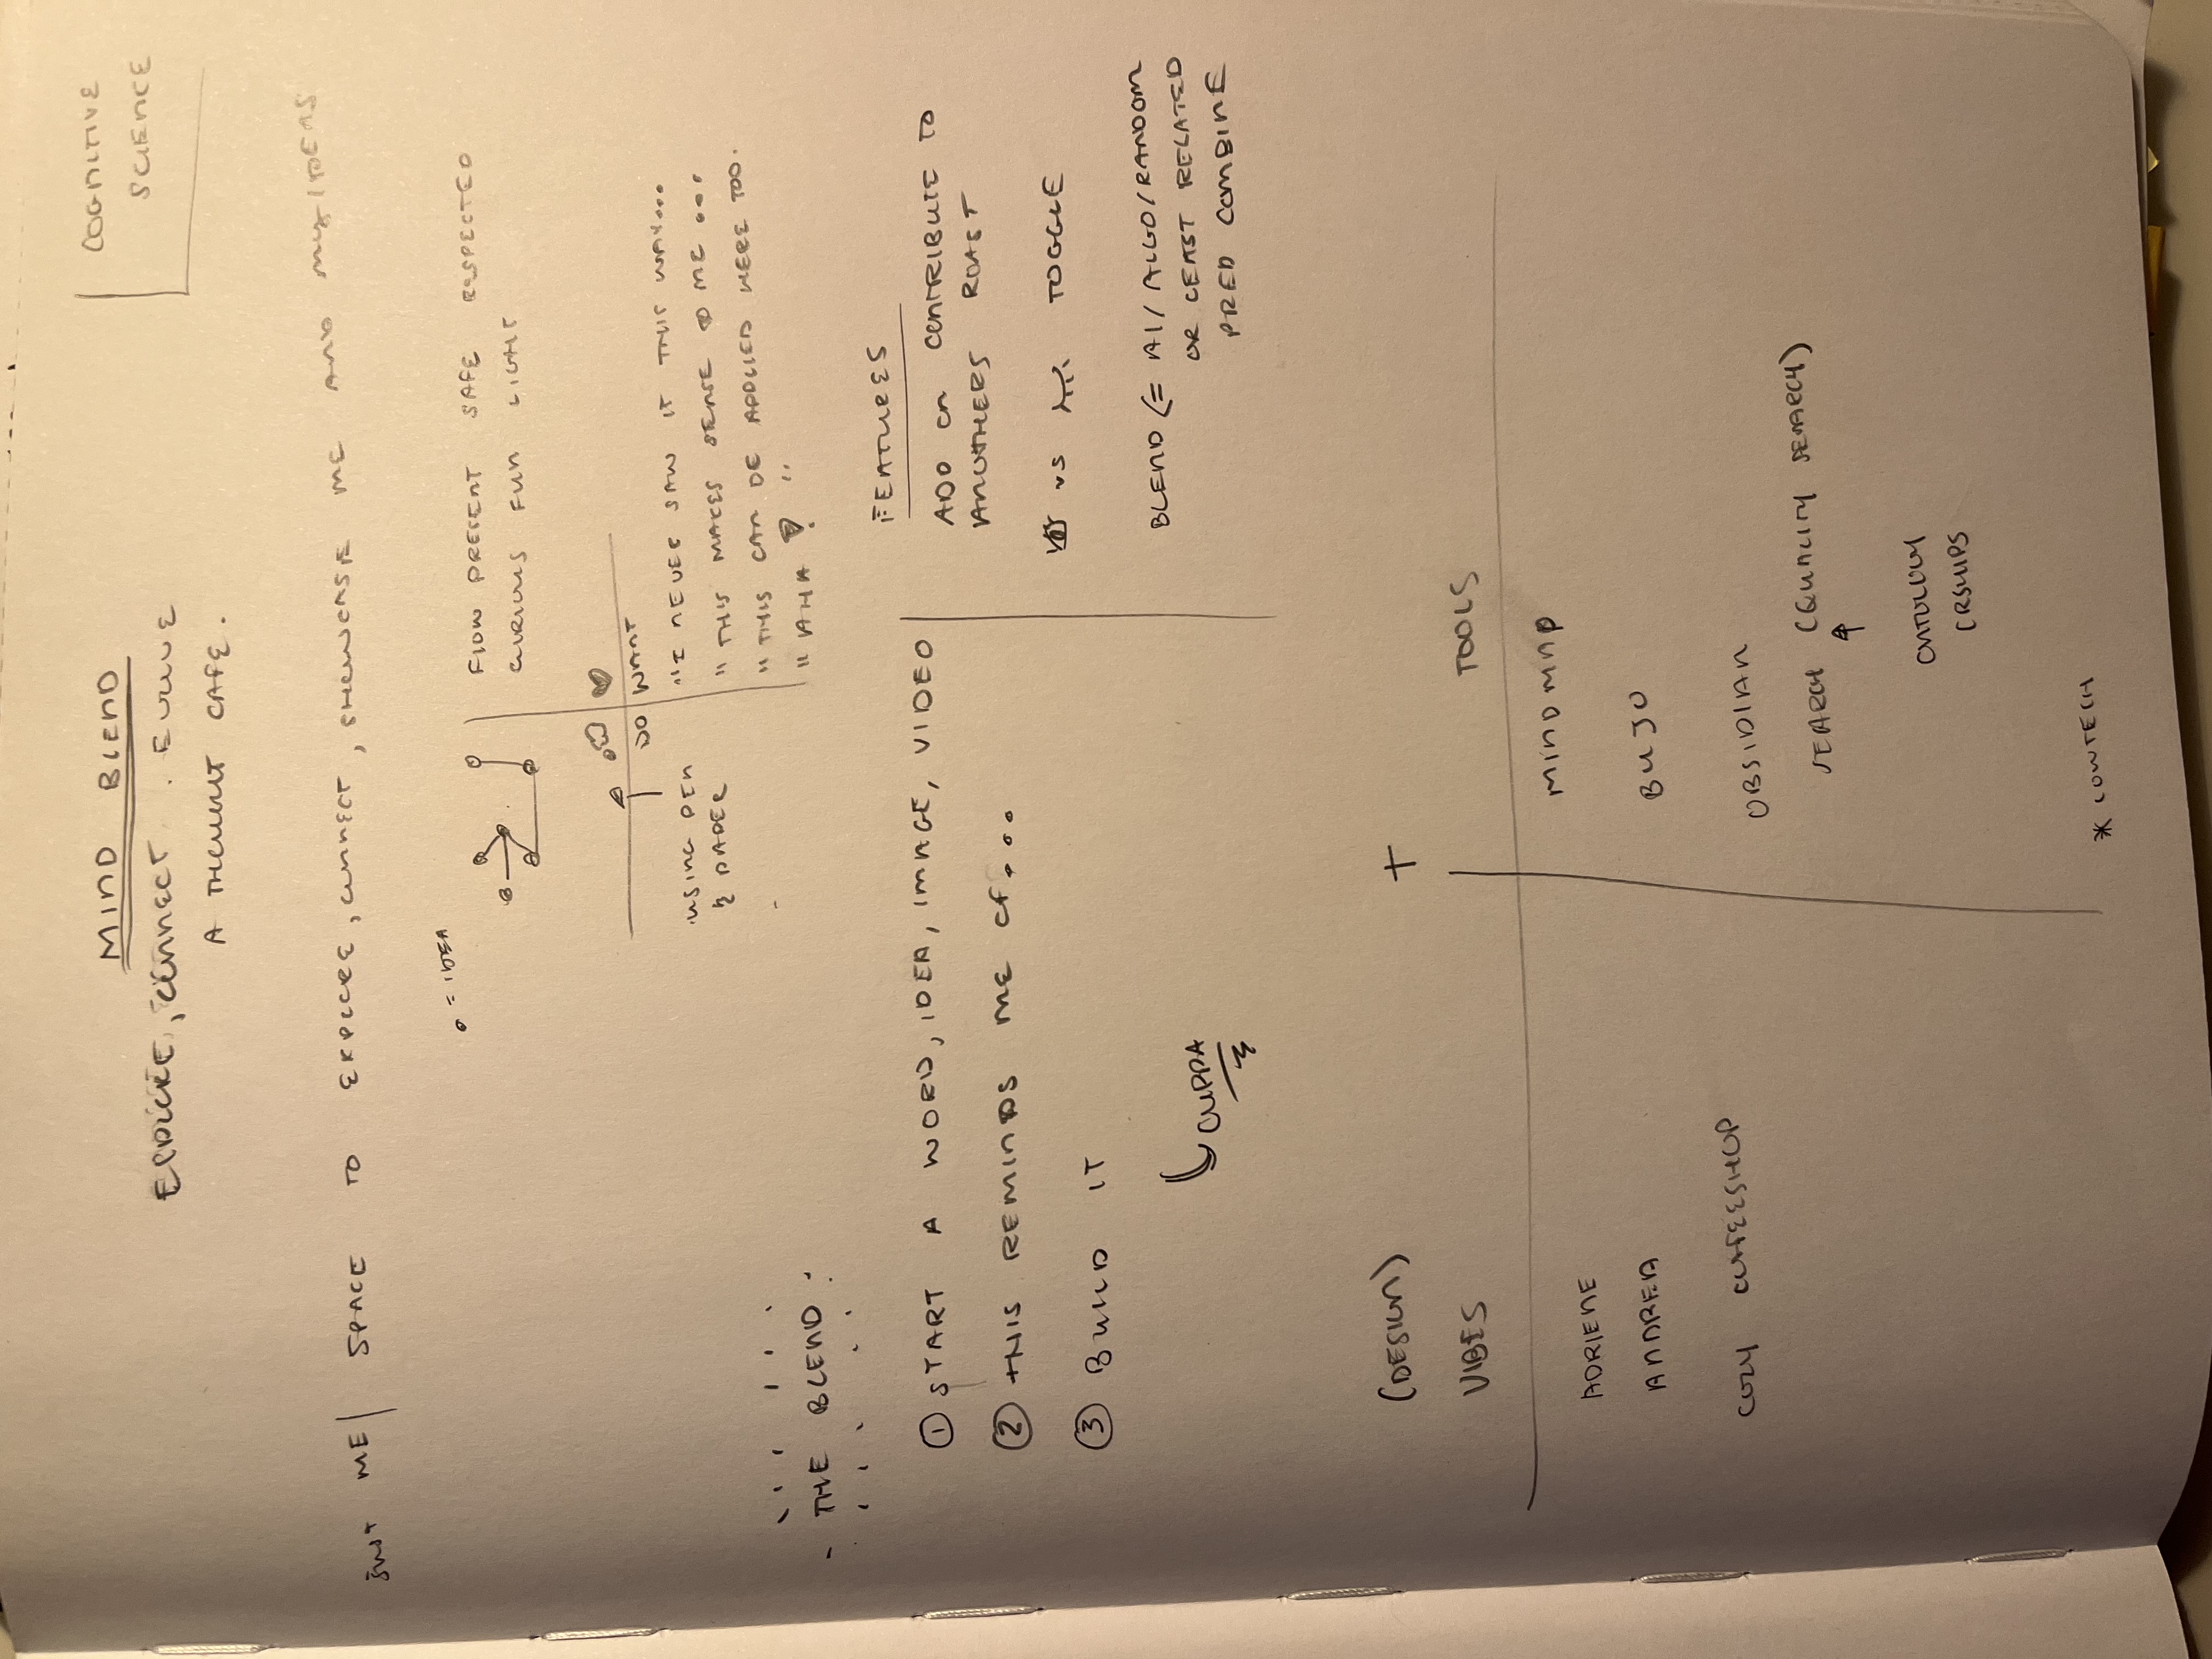 MIND BLEND
COGNITIVE
SCIENCE
EXPLORE, CONNECT. EVOLVE
A THOUGHT CAFE.
JUST ME | SPACE TO EXPLORE, CONNECT, SHOWCASE ME AND MY IDEAS
= IDEA
FLOW PRESENT SAFE RESPECTED
CURIOUS FUN LIGHT
DO WANT
USING PEN
& PAPER
"I NEVER SAW IT THIS WAY...
"THIS MAKES SENSE TO ME ...
"THIS CAN BE APPLIED HERE TOO.
"AHA! "
THE BLEND
① START A WORD, IDEA, IMAGE, VIDEO
② THIS REMINDS ME OF...
③ BUILD IT
CUPPA
FEATURES
ADD ON CONTRIBUTE TO
ANOTHERS ROAST
VS TOGGLE
BLEND (= AI/ALGO/RANDOM
OR LEAST RELATED
PRED COMBINE
(DESIGN) +
VIBES
TOOLS
ADRIENE
ANDREA
COZY COFFEESHOP
MINDMAP
BUJO
OBSIDIAN
SEARCH (QUALITY SEARCH)
↑
ONTOLOGY
* LOWTECH